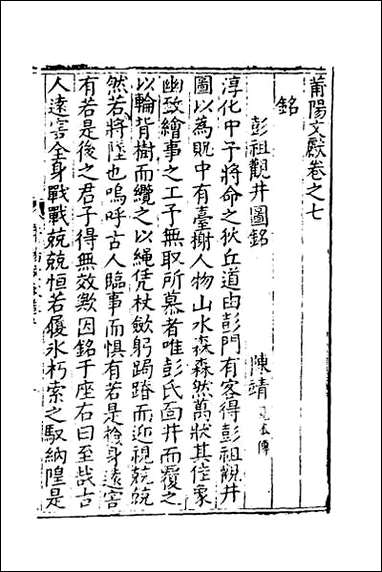 莆陽文獻卷之七
銘
彭祖觀井圖銘
陳靖見本傳
淳化中予將命之狄丘道由彭門有客得彭祖觀井
圖以為貺中有臺榭人物山水森森然萬狀其徃象
幽致繪事之工予無取所慕者唯彭氏面井而覆之
以輪背樹而纜之以䋲凭杖斂躬跼蹐而迎視兢兢
然若將墜也嗚呼古人臨事而懼有若是撿身遠害
有若是後之君子得無效歟因銘于座右曰至哉古
人遠害全身戰戰兢兢恒若履氷朽索之馭納隍是